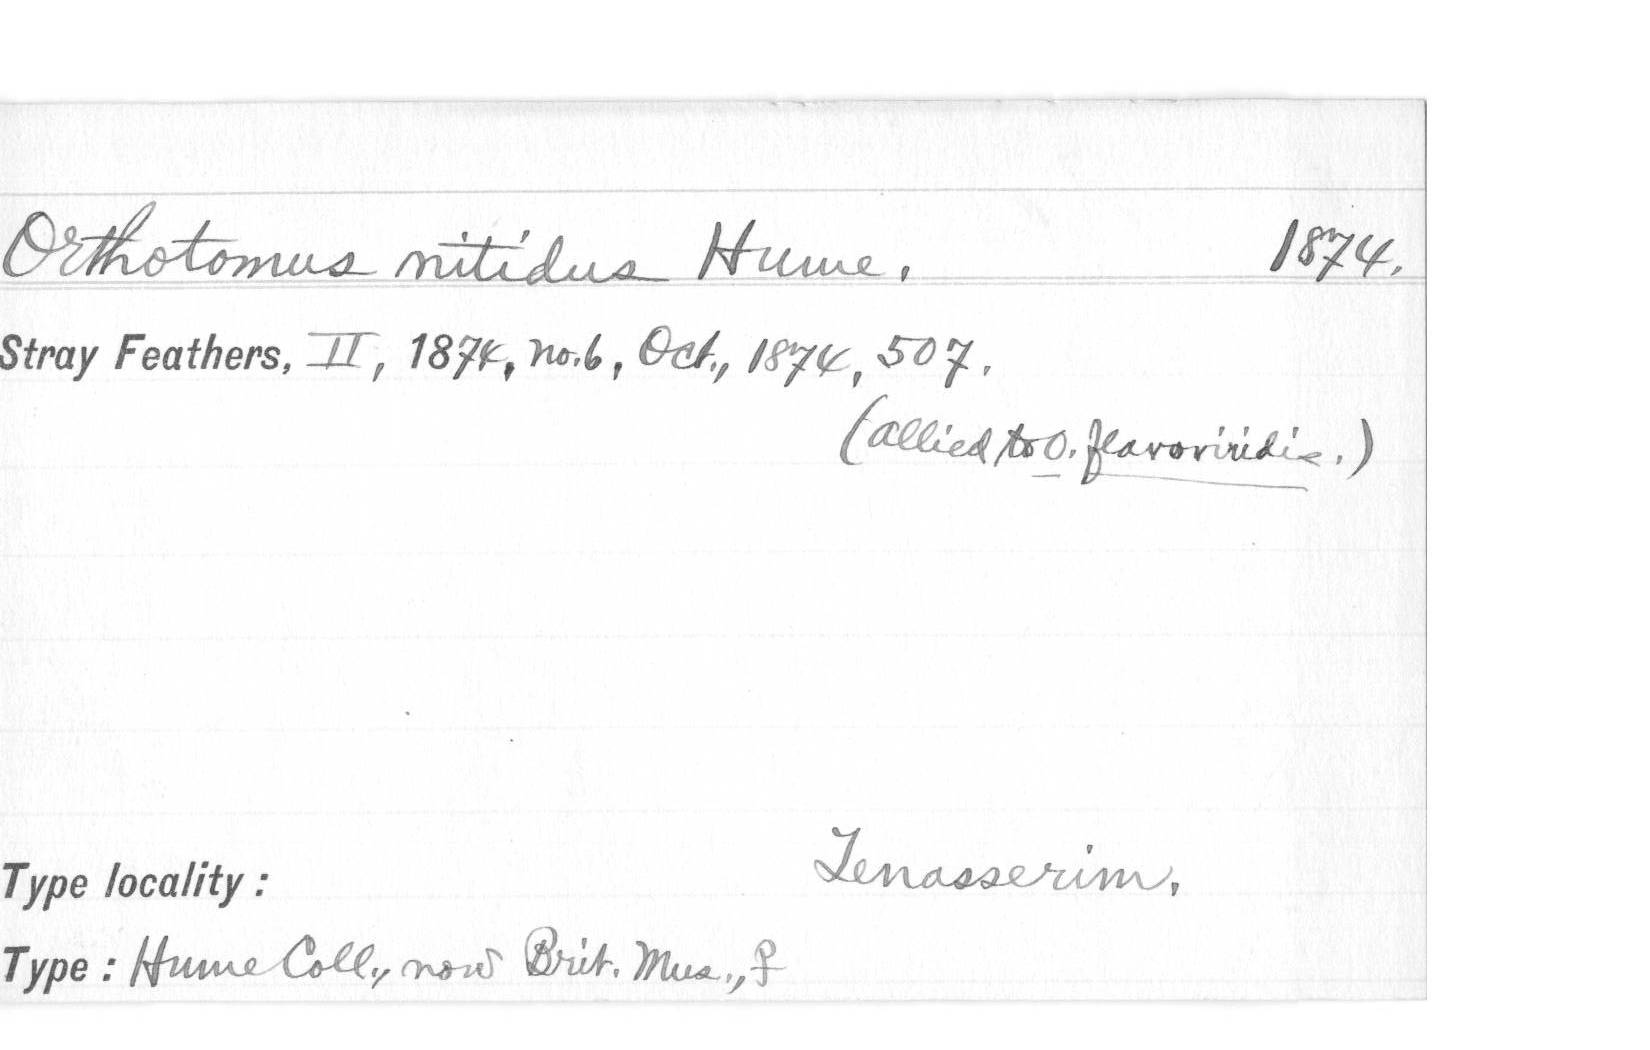 Orthotomus nitidus Hume. 1874.
Stray Feathers, II, 1874, no.6, Oct., 1874, 507.
(allied to O. flavoviridis.)
Type locality: Tenasserim.
Type: Hume Coll., now Brit. Mus., ♀